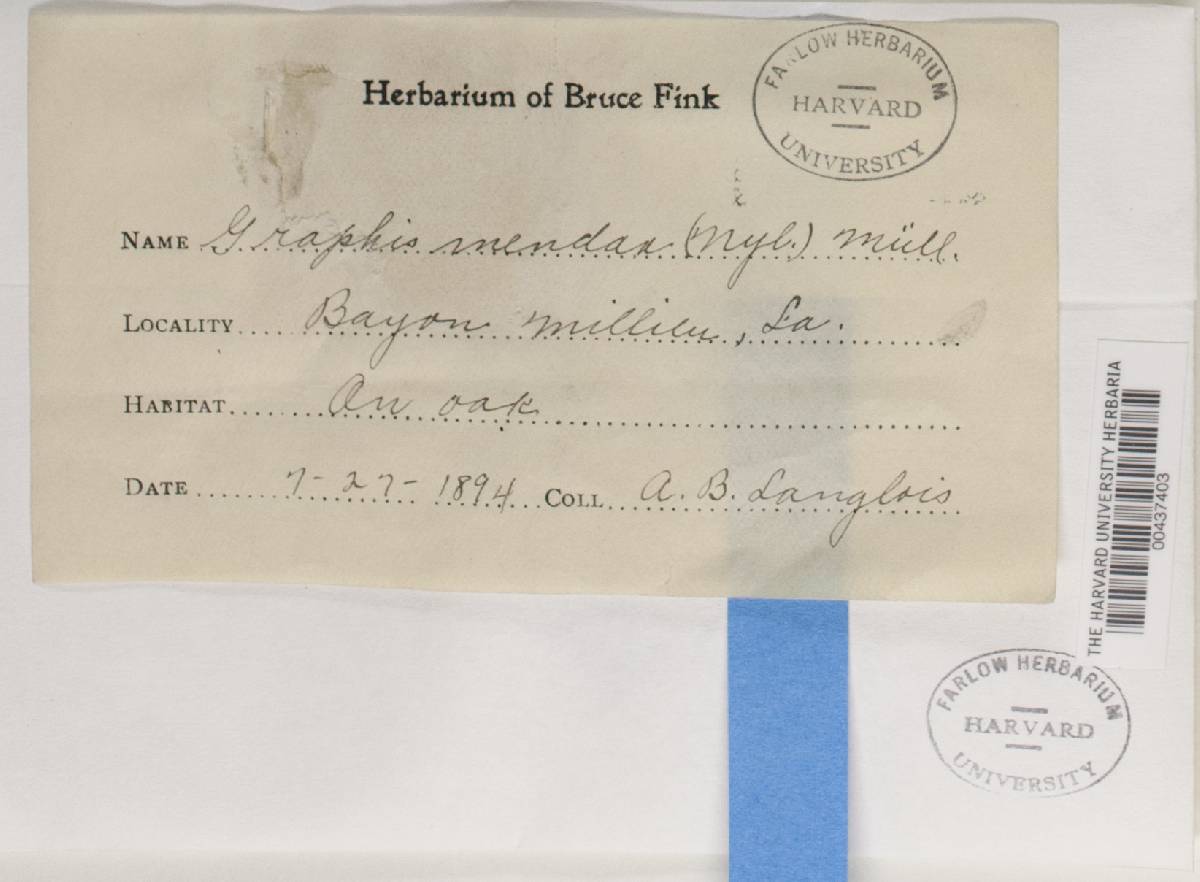 Herbarium of Bruce Fink
FARLOW HERBARIUM
HARVARD
UNIVERSITY
NAME Graphis mendax (Nyl.) Müll.
LOCALITY Bayou Millieu, La.
HABITAT On oak
DATE 7-27-1894 COLL A. B. Langlois
THE HARVARD UNIVERSITY HERBARIA
00437403
FARLOW HERBARIUM
HARVARD
UNIVERSITY